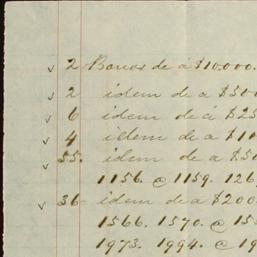 ✓ 2 Bonos de á $10.000.
✓ 2 idem de a $500
✓ 6 idem de á $25
✓ 4 idem de a $10
✓ 55. idem de a $50
1156. @ 1159. 126
✓ 36 idem de a $200
1566. 1570. @ 15
1973. 1994. @ 19